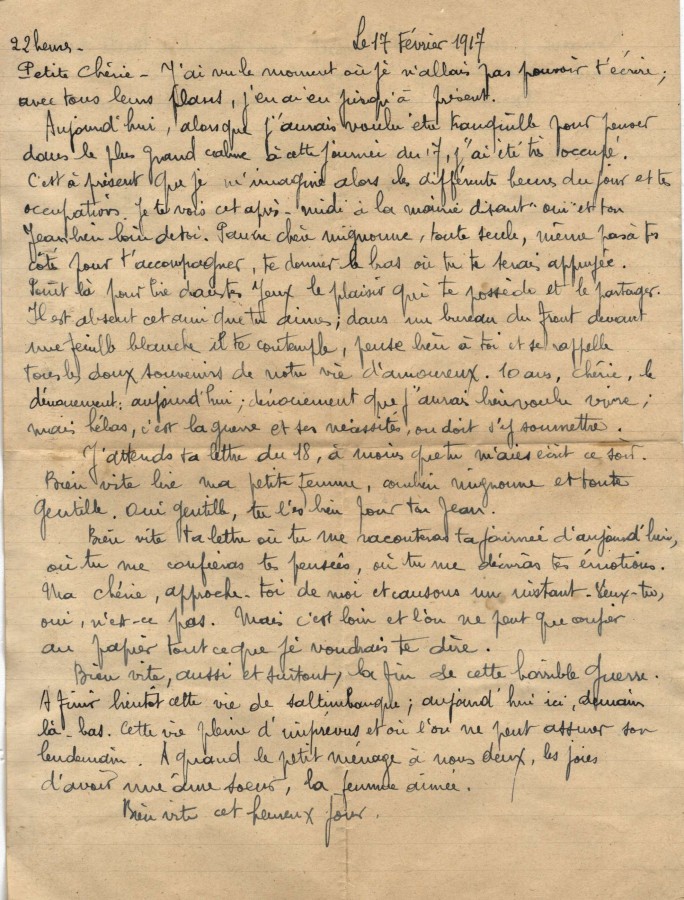 22 heures - Le 17 Février 1917
Petite Chérie - J'ai vu le moment où je n'allais pas pouvoir t'écrire;
avec tous leurs , j'en ai eu jusqu'à présent.
Aujourd'hui, alors que j'aurais voulu être tranquille pour penser
dans le plus grand calme à cette journée du 17, j'ai été très occupé.
C'est à présent que je m'imagine alors les différentes heures du jour et tes
occupations. Je te vois cet après-midi à la mairie disant "oui" et ton
Jean bien loin de toi. Pauvre chère mignonne, toute seule, même pas à tes
côté pour t'accompagner, te donner le bras où tu te serais appuyée.
Point là pour lire dans tes yeux le plaisir qui te possède et le partager.
Il est absent cet ami que tu aimes; dans un bureau du front devant
une feuille blanche il te contemple, pense bien à toi et se rappelle
tous les doux souvenirs de notre vie d'amoureux. 10 ans, chérie, le
dénouement: aujourd'hui; dénouement que j'aurais bien voulu vivre;
mais hélas, c'est la guerre et ses nécessités, on doit s'y soumettre.
J'attends ta lettre du 18, à moins que tu m'aies écrit ce soir.
Bien vite lire ma petite femme, combien mignonne et toute
gentille. Oui gentille, tu l'es bien pour ton Jean.
Bien vite ta lettre où tu me raconteras ta journée d'aujourd'hui,
où tu me confieras tes pensées, où tu me décriras tes émotions.
Ma chérie, approche-toi de moi et causons un instant. Veux-tu,
oui, n'est-ce pas. Mais c'est loin et l'on ne peut que confier
au papier tout ce que je voudrais te dire.
Bien vite, aussi et surtout, la fin de cette horrible guerre.
A finir bientôt cette vie de saltimbanque; aujourd'hui ici, demain
là-bas. Cette vie pleine d'imprévus et où l'on ne peut assurer son
lendemain. A quand le petit ménage à nous deux, les joies
d'avoir une âme soeur, la femme aimée.
Bien vite cet heureux jour.